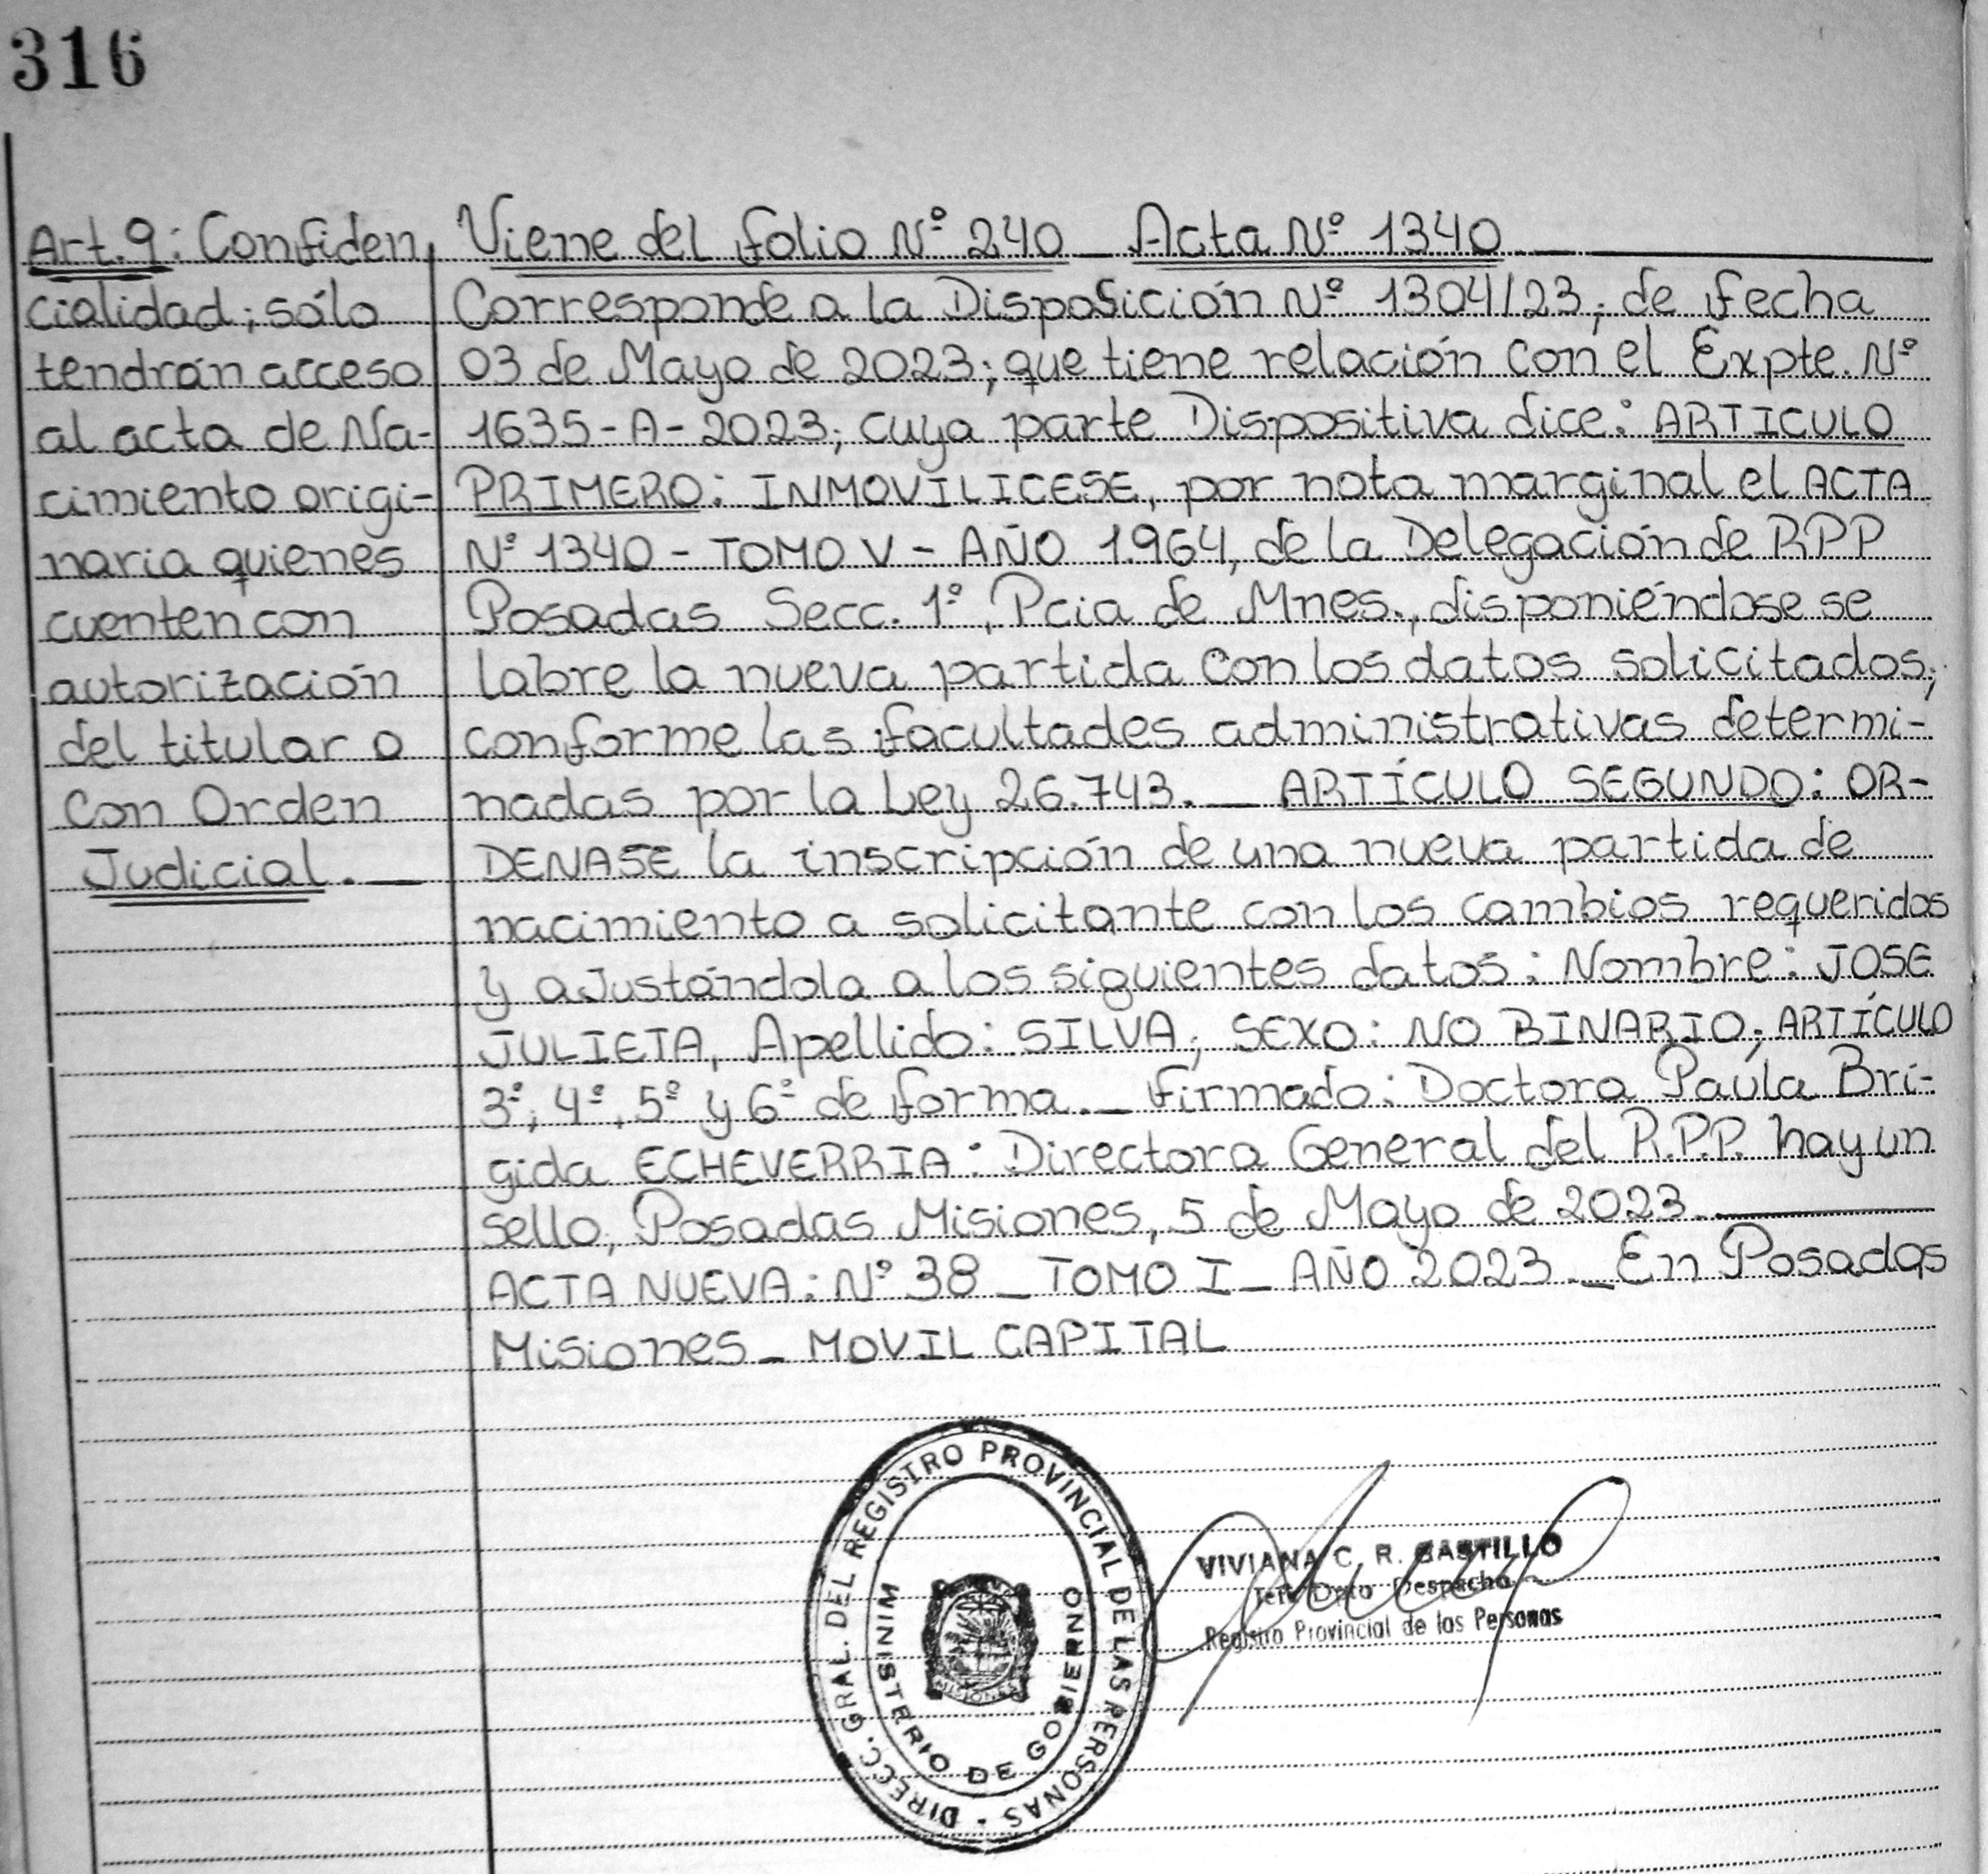 316
Art. 9: Confiden
cialidad; sólo
tendrán acceso
al acta de Na-
cimiento origi-
naria quienes
cuenten con
autorización
del titular o
Con Orden
Judicial._
Viene del folio Nº 240 _ Acta Nº 1340
Corresponde a la Disposición Nº 1304/23; de fecha
03 de Mayo de 2023; que tiene relación con el Expte. Nº
1635-A-2023; cuya parte Dispositiva dice: ARTICULO
PRIMERO: INMOVILICESE, por nota marginal el ACTA
Nº 1340 - TOMO V - AÑO 1.964, de la Delegación de RPP
Posadas Secc. 1º, Pcia de Mnes., disponiéndose se
labre la nueva partida con los datos solicitados;
conforme las facultades administrativas determi-
nadas por la Ley 26.743._ ARTÍCULO SEGUNDO: OR-
DENASE la inscripción de una nueva partida de
nacimiento a solicitante con los cambios requeridos
y ajustándola a los siguientes datos: Nombre: JOSE
JULIETA, Apellido: SILVA; SEXO: NO BINARIO; ARTÍCULO
3º, 4º, 5º y 6º de forma._ Firmado: Doctora Paula Bri-
gida ECHEVERRIA: Directora General del R.P.P. hay un
sello, Posadas Misiones, 5 de Mayo de 2023
ACTA NUEVA: Nº 38 _ TOMO I _ AÑO 2023._ En Posadas
Misiones _ MOVIL CAPITAL
DIRECC. GRAL. DEL REGISTRO PROVINCIAL DE LAS PERSONAS -
MINISTERIO DE GOBIERNO
MISIONES
VIVIANA C. R. CASTILLO
Jefe Dpto Despacho
Registro Provincial de las Personas